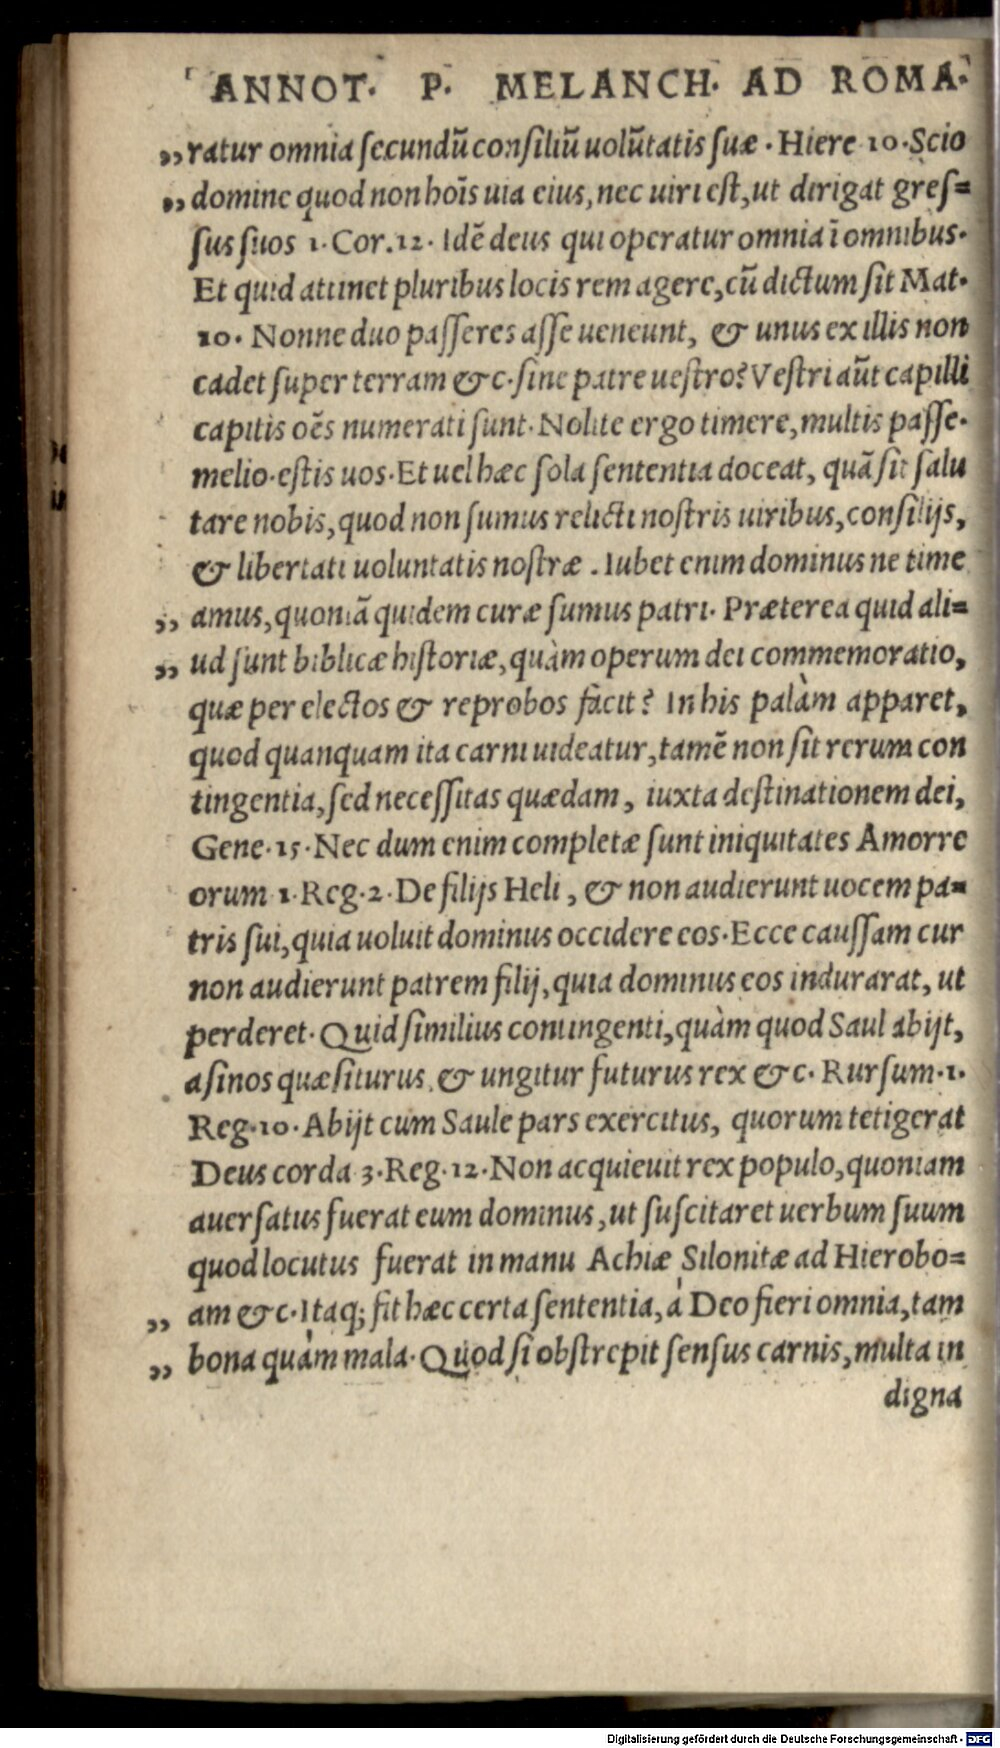 ANNOT. P. MELANCH. AD ROMA.
„ratur omnia ſecundũ conſiliũ uolũtatis ſuæ. Hiere 10. Scio
„domine quod non hoĩs uia eius, nec uiri eſt, ut dirigat greſ=
ſus ſuos 1. Cor. 12. Idẽ deus qui operatur omnia ĩ omnibus.
Et quid attinet pluribus locis rem agere, cũ dictum ſit Mat.
10. Nonne duo paſſeres aſſe ueneunt, & unus ex illis non
cadet ſuper terram &c. ſine patre ueſtro? Veſtri aũt capilli
capitis oẽs numerati ſunt. Nolite ergo timere, multis paſſe.
melio. eſtis uos. Et uel hæc ſola ſententia doceat, quã ſit ſalu
tare nobis, quod non ſumus relicti noſtris uiribus, conſilijs,
& libertati uoluntatis noſtræ. Iubet enim dominus ne time
„ amus, quoniã quidem curæ ſumus patri. Præterea quid ali=
„ ud ſunt biblicæ hiſtoriæ, quàm operum dei commemoratio,
quæ per electos & reprobos facit? In his palàm apparet,
quod quanquam ita carni uideatur, tamẽ non ſit rerum con
tingentia, ſed neceſſitas quædam, iuxta deſtinationem dei,
Gene. 15. Nec dum enim completæ ſunt iniquitates Amorre
orum 1. Reg. 2. De filijs Heli, & non audierunt uocem pa=
tris ſui, quia uoluit dominus occidere eos. Ecce cauſſam cur
non audierunt patrem filij, quia dominus eos indurarat, ut
perderet. Quid ſimilius contingenti, quàm quod Saul abijt,
aſinos quæſiturus & ungitur futurus rex &c. Rurſum. 1.
Reg. 10. Abijt cum Saule pars exercitus, quorum tetigerat
Deus corda 3. Reg. 12. Non acquieuit rex populo, quoniam
auerſatus fuerat eum dominus, ut ſuſcitaret uerbum ſuum
quod locutus fuerat in manu Achiæ Silonitæ ad Hierobo=
„ am &c. Itaq; fit hæc certa ſententia, à Deo fieri omnia, tam
„ bona quàm mala. Quod ſi obſtrepit ſenſus carnis, multa in
digna
Digitalisierung gefördert durch die Deutsche Forschungsgemeinschaft - DFG